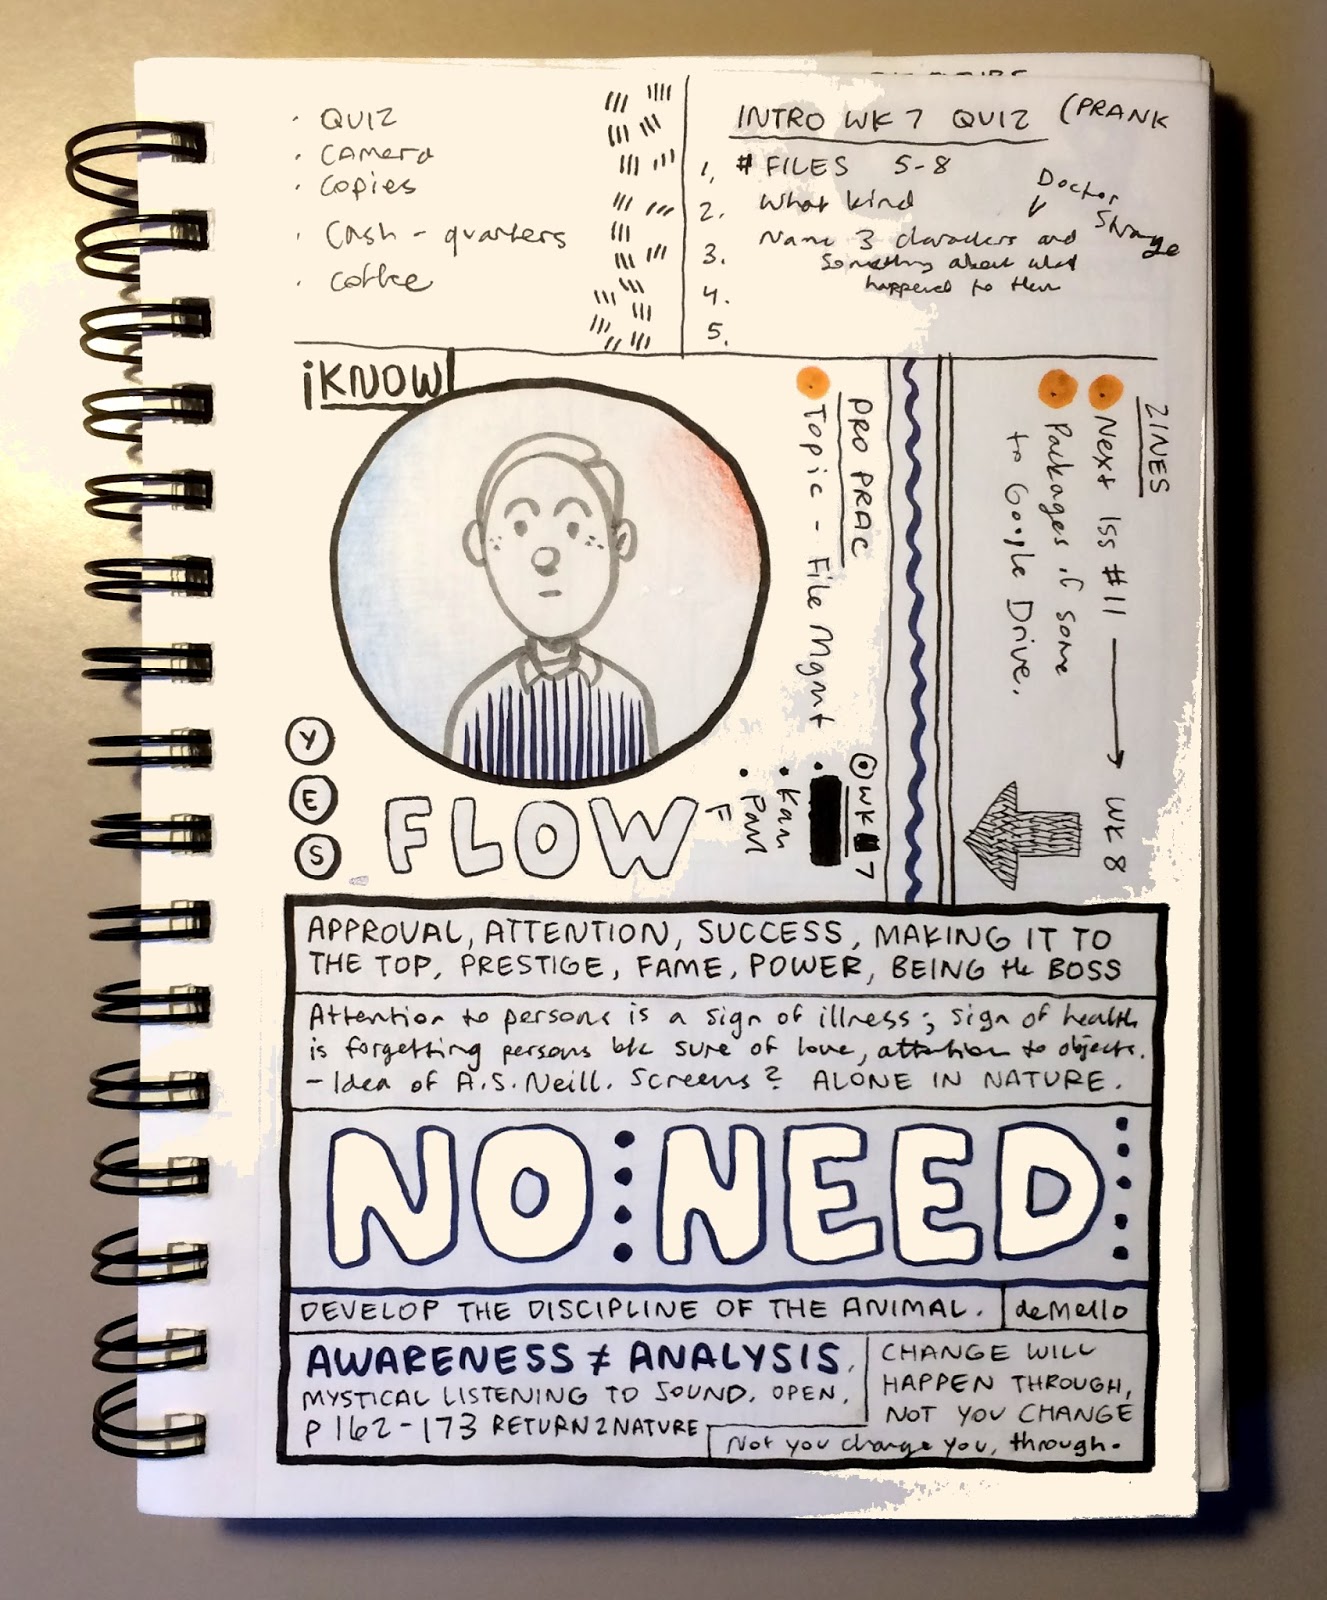 · QUIZ
· Camera
· Copies
· Cash - quarters
· Coffee
INTRO WK 7 QUIZ (PRANK
1. # FILES 5-8
2. What kind
3. Name 3 characters and
something about what
happened to them
Doctor
Strange
4.
5.
iKNOW
PRO PRAC
Topic - File Mgmt
WK 7
Paul
F
ZINES
Next Iss #11 → WK 8
Packages if some
to Google Drive.
YES
FLOW
APPROVAL, ATTENTION, SUCCESS, MAKING IT TO
THE TOP, PRESTIGE, FAME, POWER, BEING the BOSS
Attention to persons is a sign of illness; sign of health
is forgetting persons b/c sure of love, attention to objects.
- Idea of A.S. Neill. Screens? ALONE IN NATURE.
NO NEED
DEVELOP THE DISCIPLINE OF THE ANIMAL. deMello
AWARENESS ≠ ANALYSIS.
MYSTICAL LISTENING TO SOUND. OPEN.
p 162-173 RETURN 2 NATURE
CHANGE WILL
HAPPEN THROUGH,
NOT YOU CHANGE
Not you change you, through.